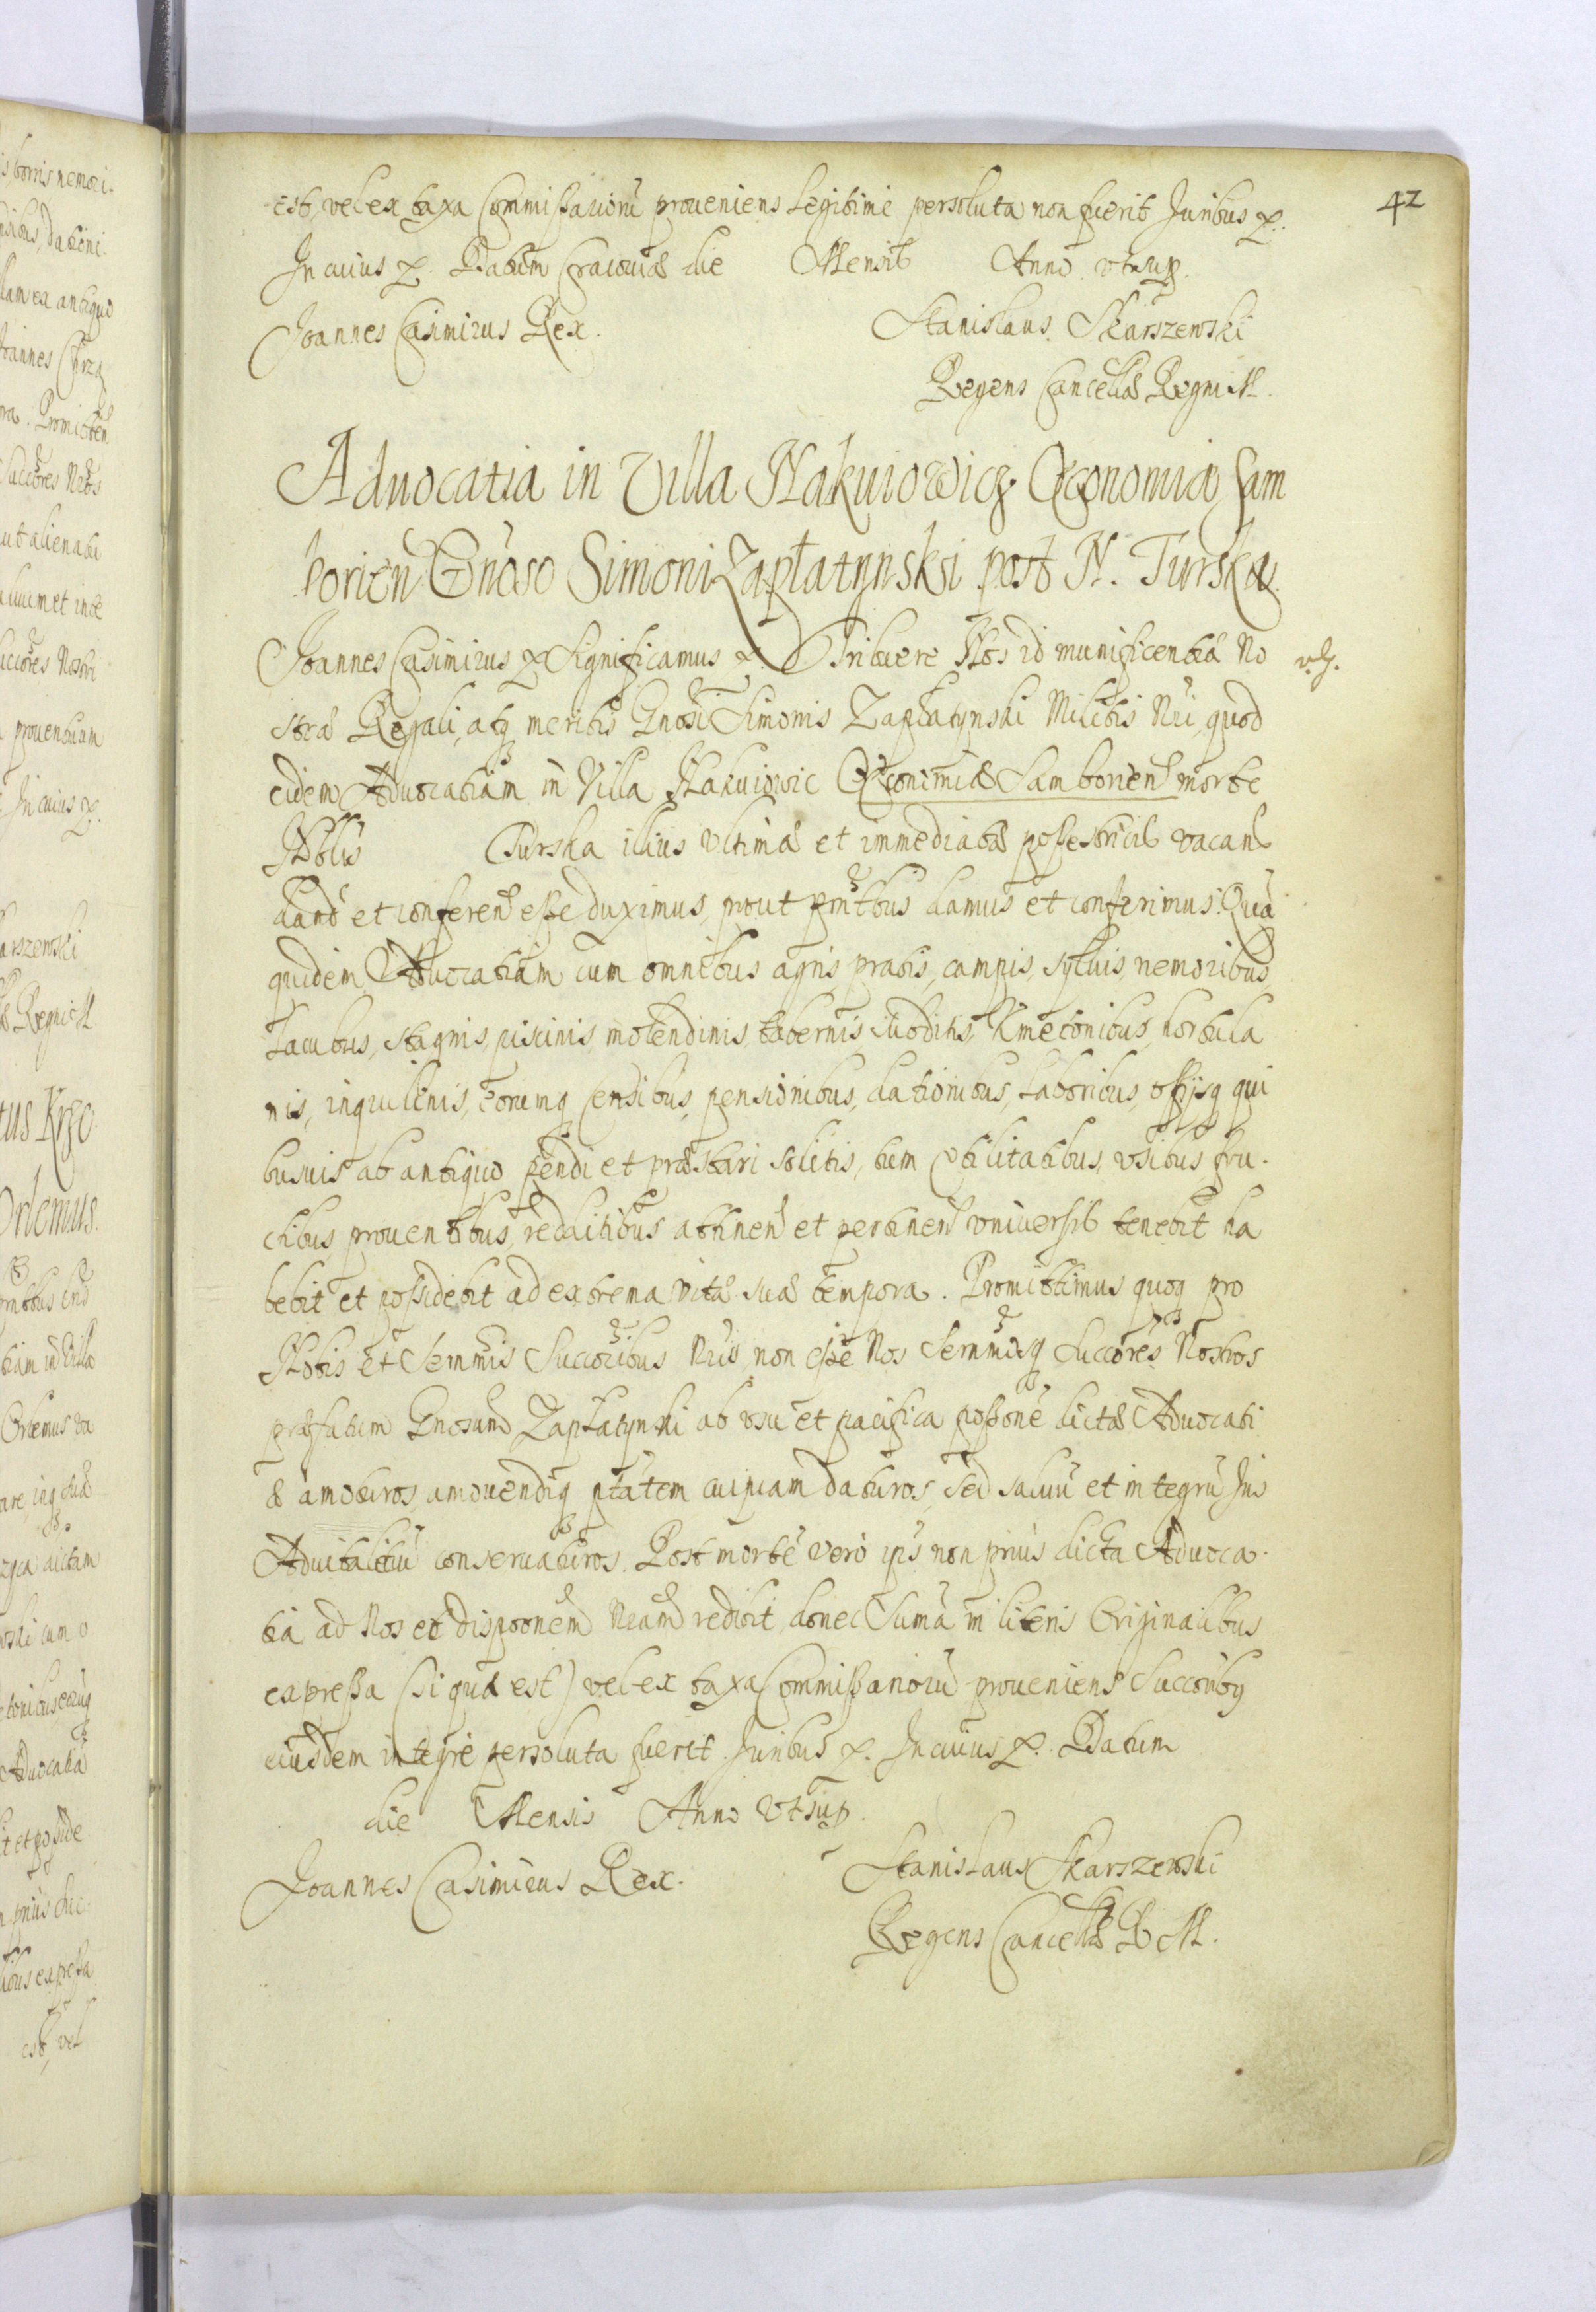 42
est, vel ex taxa Commissariorũ proveniens Legitime persoluta non fuerit Juribus &.
In cuius &. Datum Cracoviæ die Mensis Anno utsup.
Joannes Casimirus Rex.
Stanislaus Skarszewski
Regens Cancellæ Regni M.
Advocatia in Villa Hakuiowicz Œconomiæ Sam
borien Gnoso Simoni Zapłatynski post N. Turska
Joannes Casimirus & Significamus & Tribuere Nos id munificentiæ No
stræ Regali, atq meritis Gnosi Simonis Zapłatynski Militis Nri, quod
eidem Advocatiam in Villa Hakuiowic Œconimiæ Samborien morte
Nobilis Turska illius ultimæ et immediatæ possestricis vacan
dand et conferen esse duximus, prout pntibus damus et conferimus. Quã
quidem Advocatiam cum omnibus agris, pratis, campis, sylvis, nemoribus,
Lacubus, stagnis, piscinis, molendinis, tabernis, Kmetonibus, hortula
nis, inquilinis, eorumq censibus, pensionibus, dationibus, Laboribus, offijsq qui
busvis ab antiquo pendi et præstari solitis, tum utilitatibus, usibus, fru-
ctibus proventibus, redditibus attinen et pertinen universis tenebit ha
bebit et possidebit ad extrema vitæ suæ tempora. Promittimus quoq pro
Nobis et Sernmis Succoribus Nris, non esse Nos Sernmosq Succores Nostros
præfatum Gnosum Zapłatynski ab usu et pacifica possone dictæ Advocati
æ amoturos, amovendiq ptatem cuipiam daturos, Sed salvũ et integrũ Jus
Advitalitiũ conservaturos. Post mortẽ vero ips non prius dicta Advoca-
tia ad Nos et disponem Nram redibit, donec Suma in literis Originalibus
expressa (si qua est) vel ex taxa Commissariorũ proveniens Succoribq
eiusdem integre persoluta fuerit. Juribus &. In cuius &. Datum
die Mensis Anno Utsup.
Joannes Casimirus Rex.
Stanislaus Skarszewski
Regens Cancellæ R M.